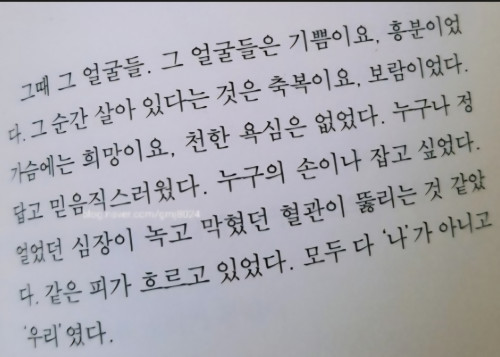 그때 그 얼굴들. 그 얼굴들은 기쁨이요, 흥분이었
다. 그 순간 살아 있다는 것은 축복이요, 보람이었다.
가슴에는 희망이요, 천한 욕심은 없었다. 누구나 정
답고 믿음직스러웠다. 누구의 손이나 잡고 싶었다.
얼었던 심장이 녹고 막혔던 혈관이 뚫리는 것 같았
다. 같은 피가 흐르고 있었다. 모두 다 ‘나’가 아니고
‘우리’였다.